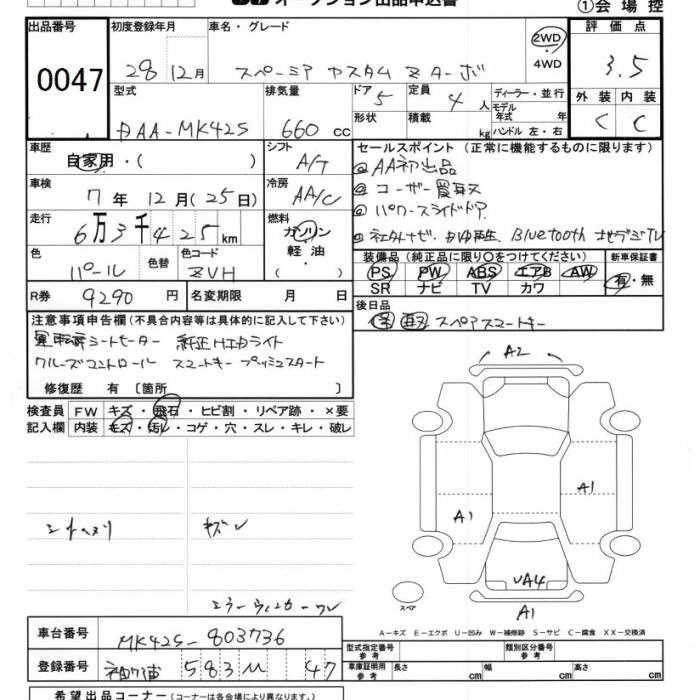 オークション出品申込書
①会場控
出品番号 初度登録年月 車名・グレード 2WD 評価点
0047 28 12月 スペーシア カスタム Z ターボ 4WD 3.5
型式 排気量 ドア 5 定員 4 人 ディーラー・並行 外装 内装
DAA-MK42S 660 cc 形状 積載 kg モデル年式 年 ハンドル 左・右 C C
車歴 シフト セールスポイント (正常に機能するものに限ります)
自家用・( ) A/T ◎AA初出品
車検 7年 12月(25日) 冷房 AA/C ◎ユーザー買取
走行 6万3千425km 燃料 ガソリン 軽油 ・( ) ◎パワースライドドア
◎社外ナビ. Bluetooth 地デジTV
色 パール 色替 色コード ZVH
装備品(純正品に限り○をつけてください) 新車保証書
PS PW ABS エアB AW 有・無
SR ナビ TV カワ
R券 9290 円 名変期限 月 日
後日品
保 取 スペアスマートキー
注意事項申告欄(不具合内容等は具体的に記入して下さい)
シートヒーター 純正HIDライト
クルーズコントロール スマートキー プッシュスタート
修復歴 有 〔箇所 〕
検査員 FW キズ・飛石・ヒビ割・リペア跡・×要
記入欄 内装 キズ・汚レ・コゲ・穴・スレ・キレ・破レ
A2
A1
A1
シートヘタリ キズレ
UA4
A1
スペア
ミラーウィンカーワレ
A-キズ E-エクボ U-凹み W-補修跡 S-サビ C-腐食 XX-交換済
車台番号 MK42S-803736
登録番号 袖ケ浦 583 ム 47
型式指定番号 参考 類別区分番号 参考
車庫証明用 参考 長さ cm 幅 cm 高さ cm
希望出品コーナー(コーナーは各会場により異なります。)